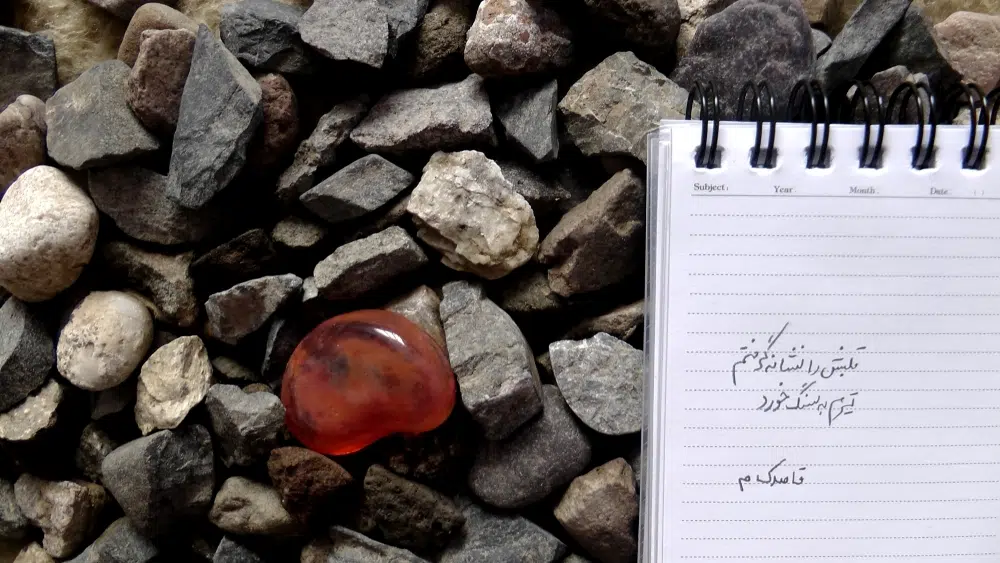 Subject: Year. Month. Date. ( )
قلبش را نشانه گرفتم
تیرم به سنگ خورد
قاصدک م